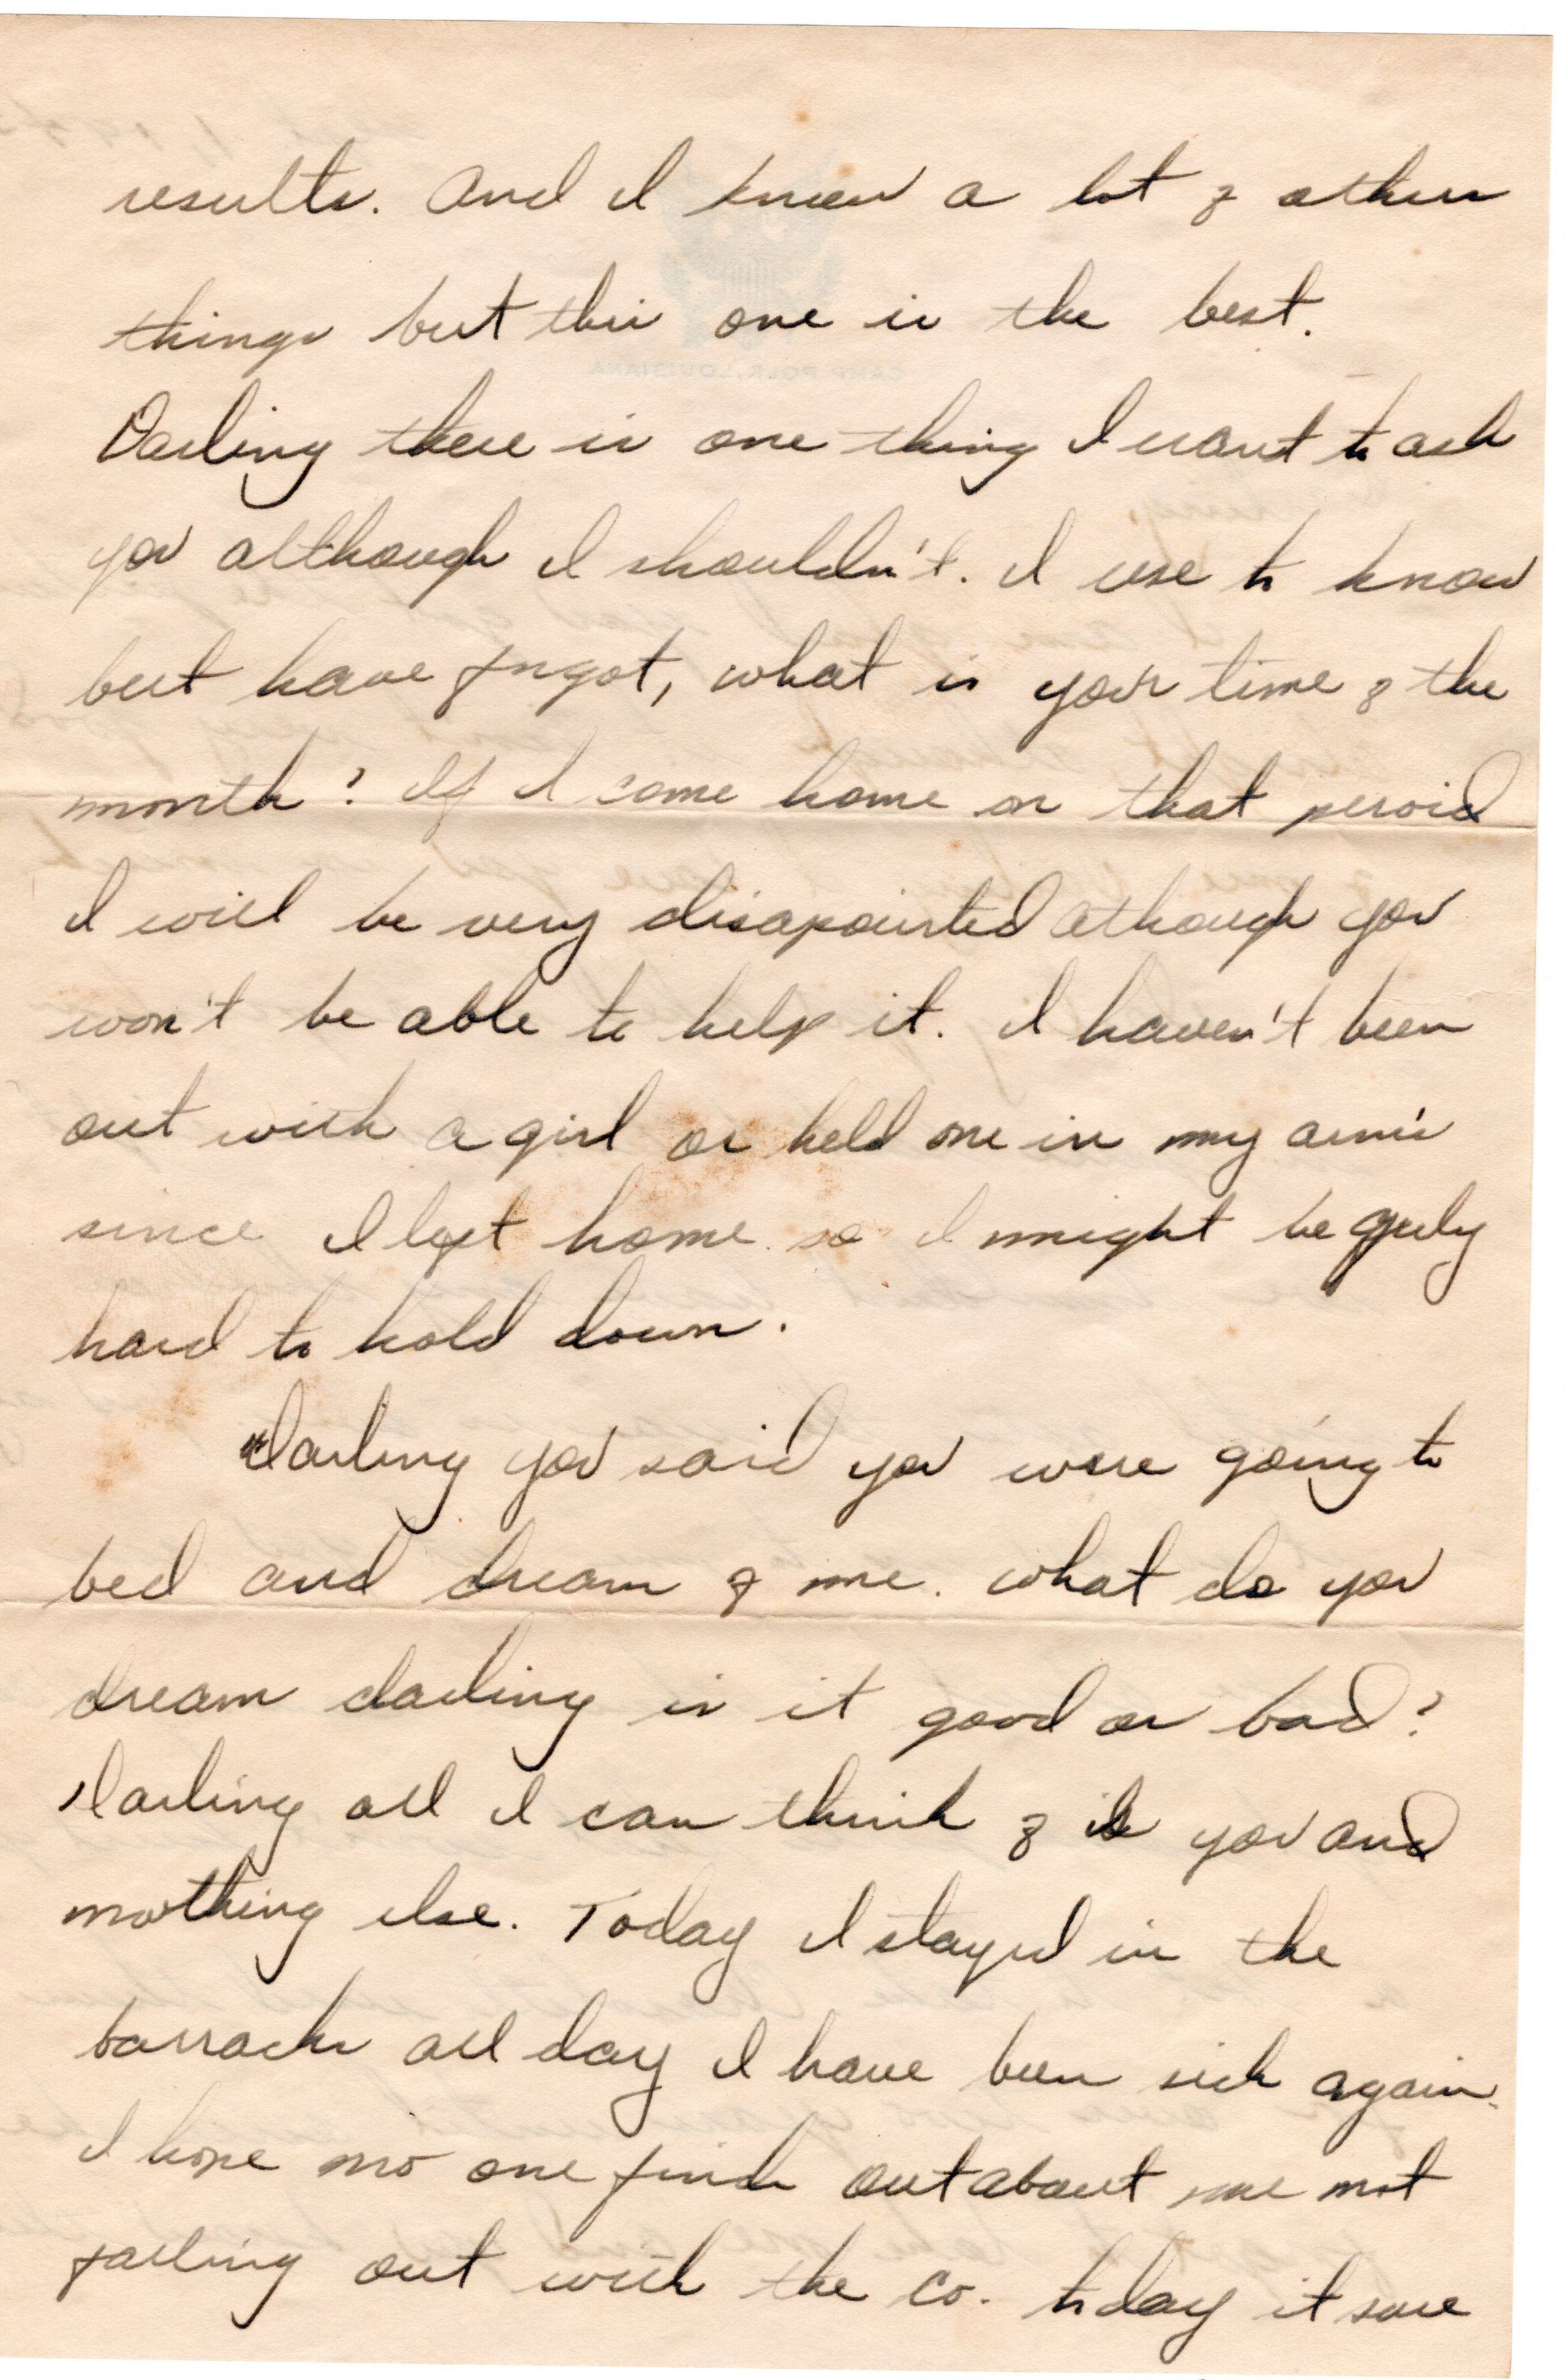 results. And I know a lot of other
things but this one is the best.
Darling there is one thing I want to ask
you although I shouldn't. I use to know
but have forgot, what is your time of the
month? If I come home on that peroid
I will be very disapointed athough you
won't be able to help it. I haven't been
out with a girl or held one in my arm's
since I left home so I might be
hard to hold down.
Darling you said you were going to
bed and dream of me. what do you
dream darling is it good or bad?
Darling all I can think of is you and
nothing else. Today I stayed in the
barracks all day I have been sick again.
I hope no one finds out about me not
falling out with the co. today it sure
CAMP POLK, LOUISIANA